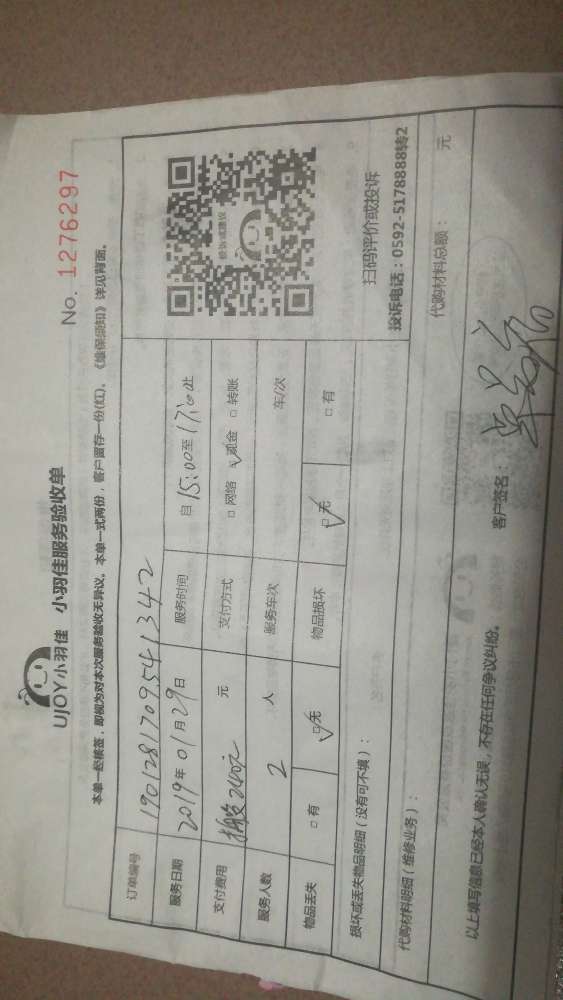 UJOY小羽佳 小羽佳服务验收单
No. 1276297
本单一经核签，即视为对本次服务验收无异议。本单一式两份，客户留存一份(红)。《维保须知》详见背面。
订单编号 190128170954 1342
服务日期 2019年01月29日 服务时间 自15:00至17:00止
支付费用 240元 元 支付方式 □网络 ☑现金 □转账
服务人数 2 人 服务车次 车/次
物品丢失 □有 ☑无 物品损坏 ☑无 □有
扫码评价或投诉
投诉电话：0592-5178888转2
损坏或丢失物品明细（没有可不填）：
代购材料明细（维修业务）： 代购材料总额： 元
以上填写信息已经本人确认无误，不存在任何争议纠纷。 客户签名：